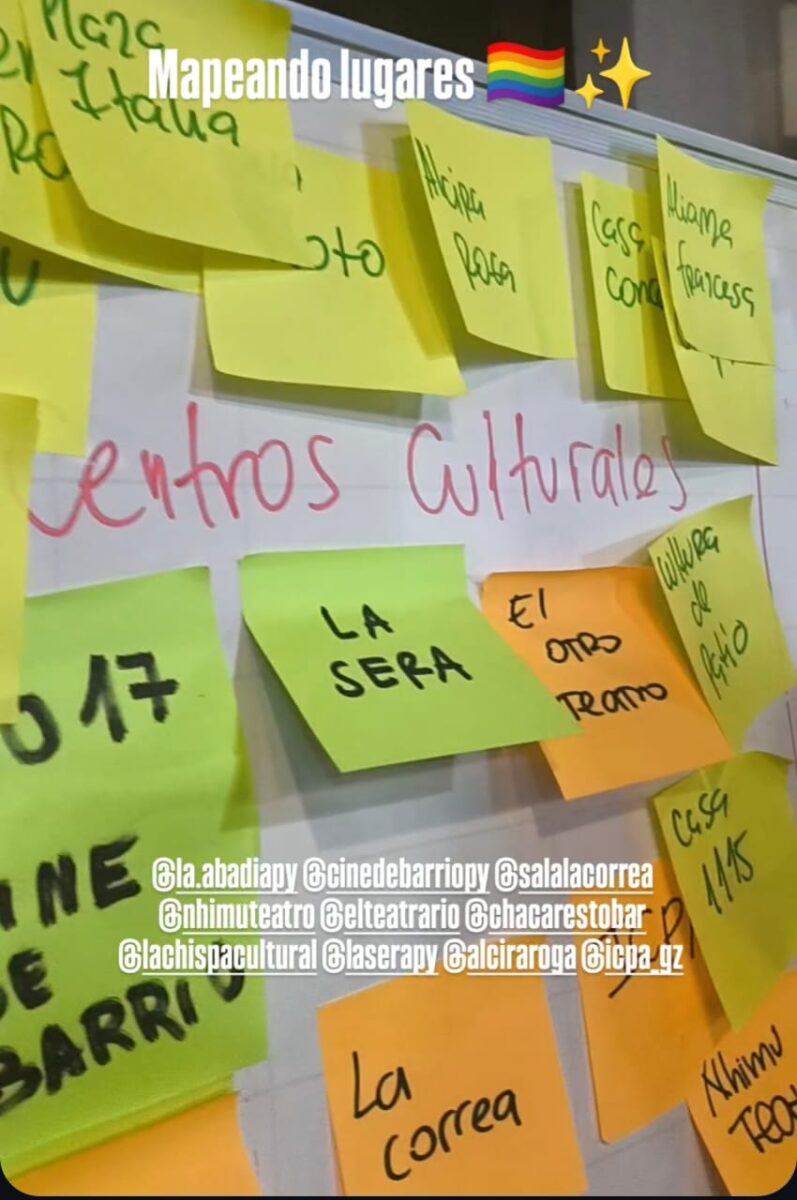 Mapeando lugares 🏳️‍🌈✨
Plaza
Italia
Alcira
Roga
Casa
Alianza
francesa
Centros Culturales
LA
SERA
El
OTRO
Teatro
Cultura
de
Patio
017
CINE
DE
BARRIO
Casa
1115
ICPA
@la.abadiapy @cinedebarriopy @salalacorrea
@nhimuteatro @elteatrario @chacarestobar
@lachispacultural @laserapy @alciraroga @icpa_gz
La
correa
Nhimu